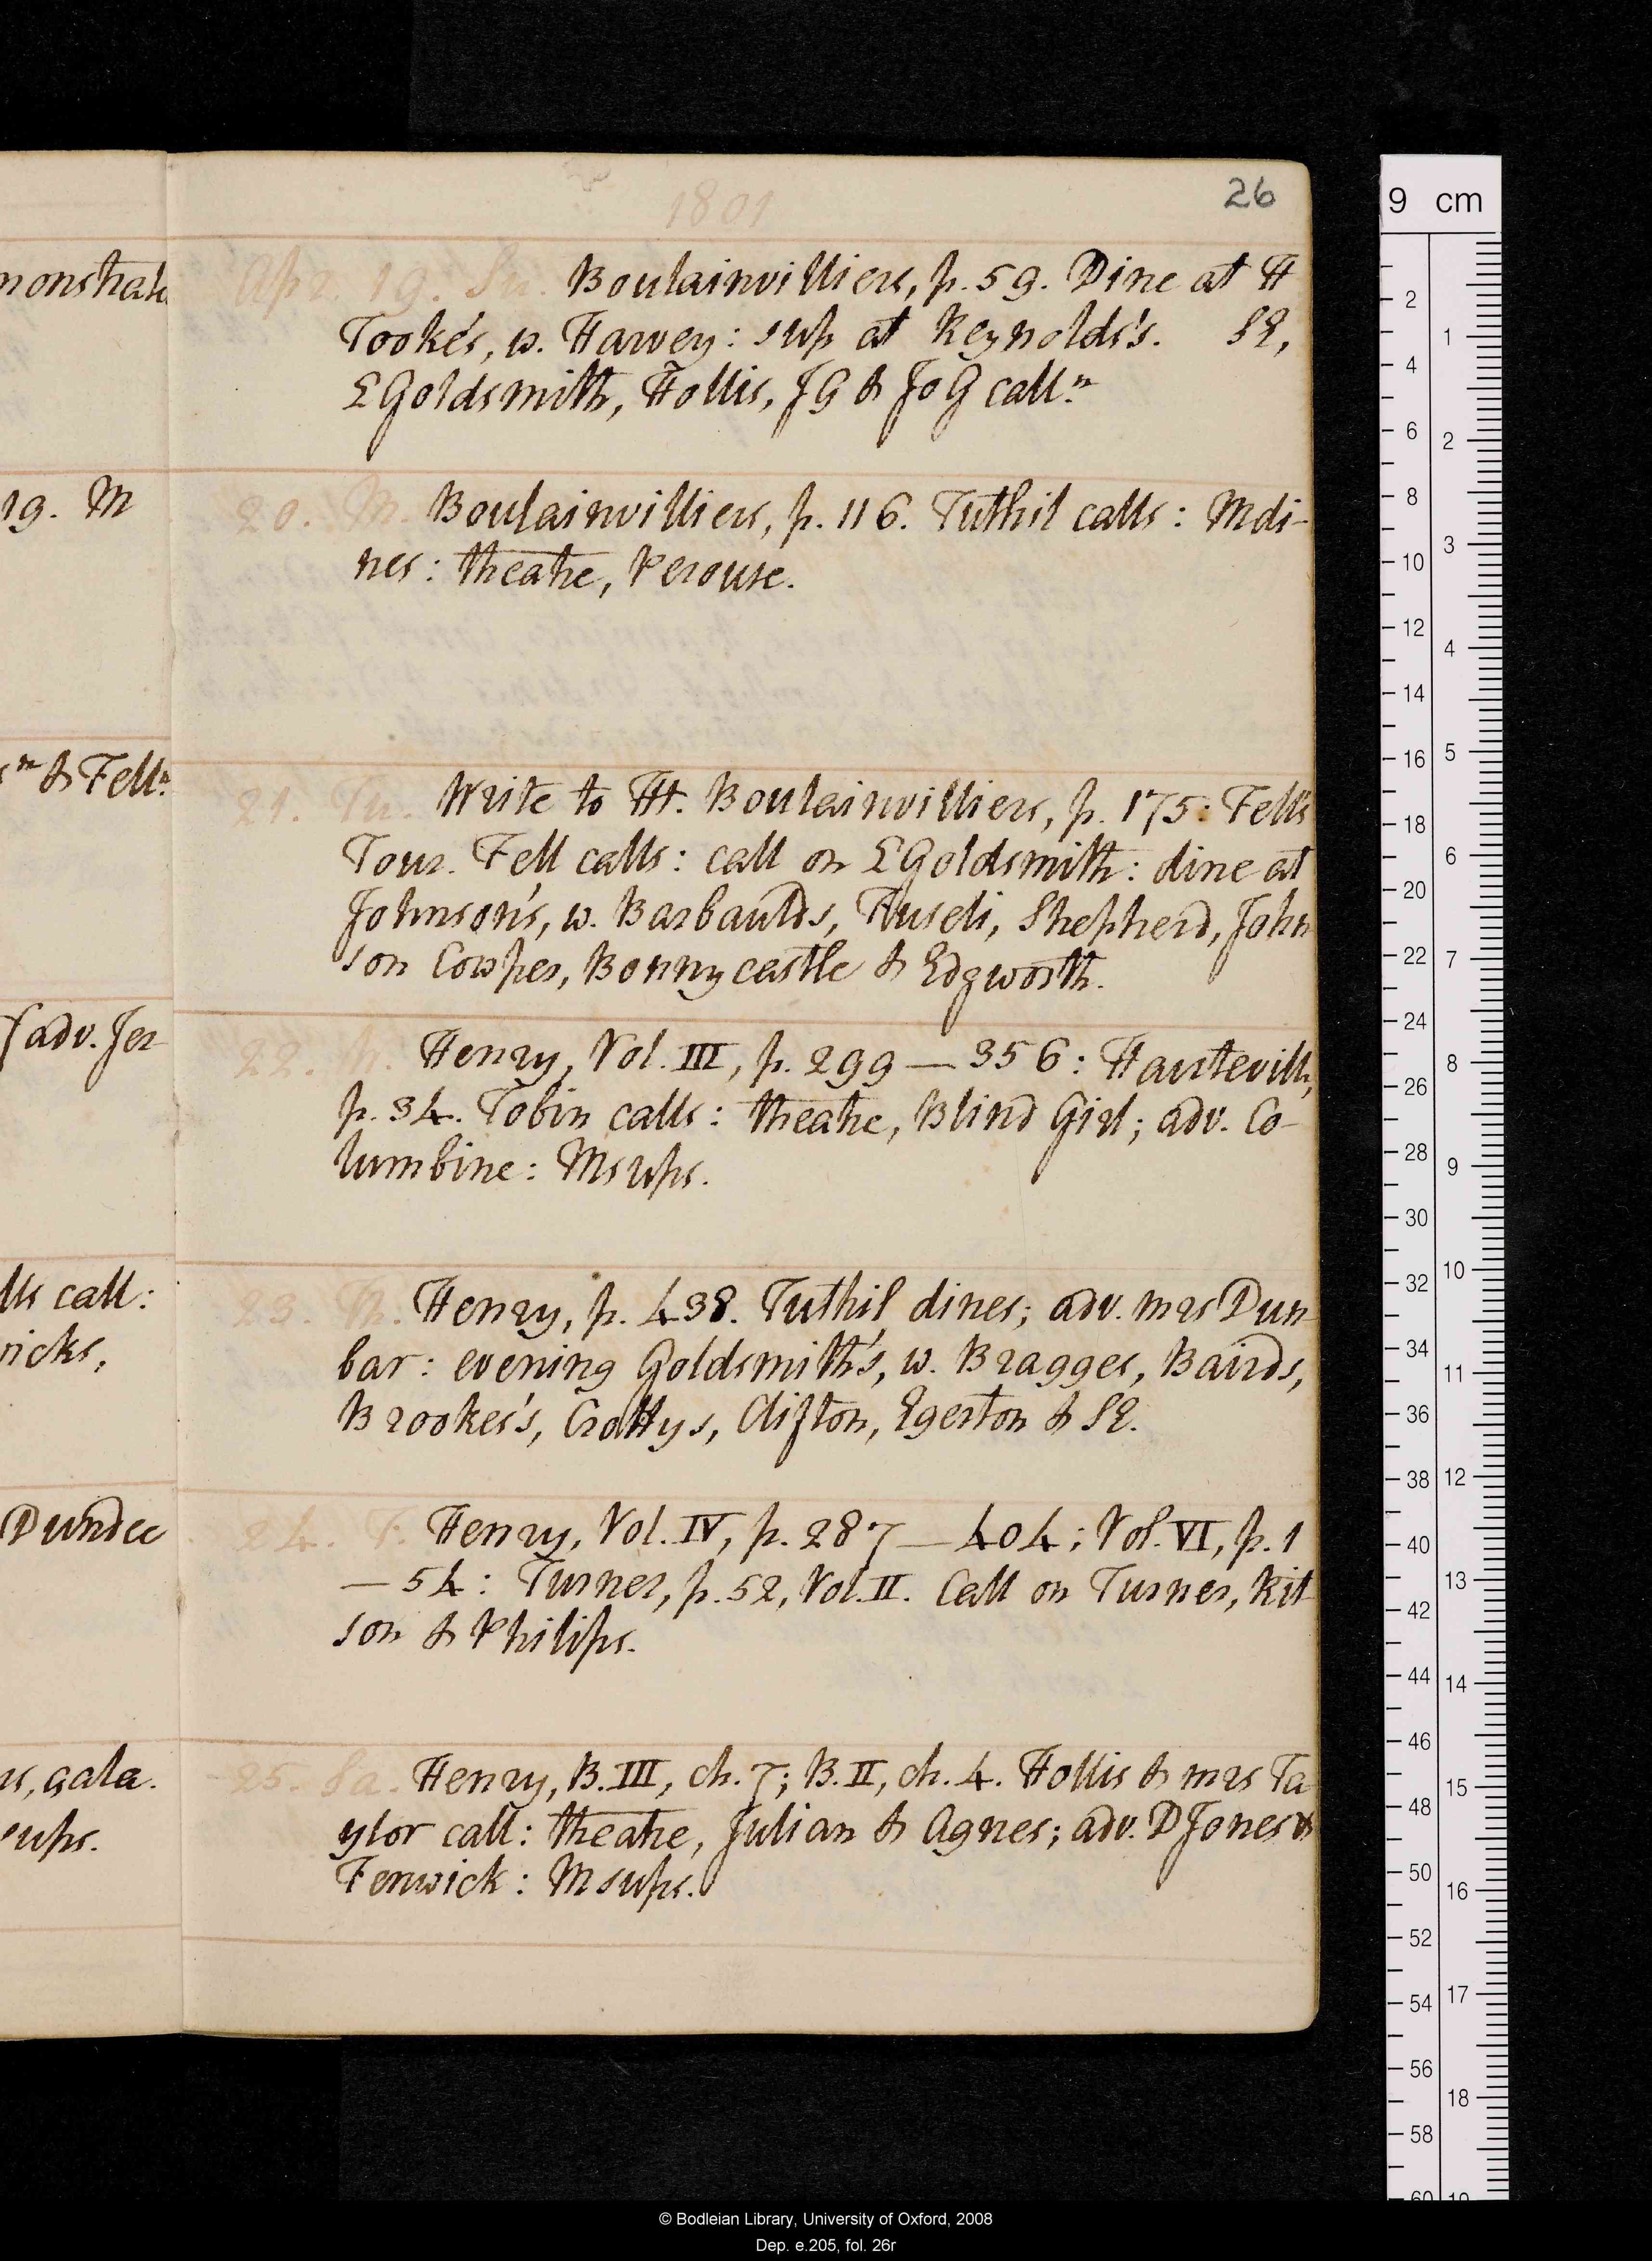 1801
26
monstrati
Apr. 19. Su. Boulainvilliers, p. 59. Dine at H
Tooke's, w. Harvey: sup at Reynolds's. SE,
L Goldsmith, Hollis, JG & JoG calln
19. M
20. M. Boulainvilliers, p. 116. Tuthil calls: M di-
nes: theatre, Perouse.
n & Felln
21. Tu. Write to TH. Boulainvilliers, p. 175: Fell's
Tour. Fell calls: call on L Goldsmith: dine at
Johnson's, w. Barbaulds, Fuseli, Shepherd, John
son Cowper, Bonnycastle & Edgworth.
adv. Jer
22. W. Henry, Vol. III, p. 299 — 356: Hauteville,
p. 34. Tobin calls: theatre, Blind Girl; adv. Co-
lumbine: M sups.
lls call:
wicks,
23. Th. Henry, p. 438. Tuthil dines; adv. mrs Dun
bar: evening Goldsmith's, w. Bragges, Bairds,
Brookes's, Crottys, Clifton, Egerton & SE.
Dundee
24. F. Henry, Vol. IV, p. 287 — 404; Vol. VI, p. 1
— 54: Turner, p. 52, Vol. II. Call on Turner, Rit
son & Philips.
rs, gala.
sups.
25. Sa. Henry, B. III, ch. 7; B. II, ch. 4. Hollis & mrs Ta
ylor call: theatre, Julian & Agnes; adv. D Jones &
Fenwick: M sups.
9 cm
2
4
6
8
10
12
14
16
18
20
22
24
26
28
30
32
34
36
38
40
42
44
46
48
50
52
54
56
58
60
1
2
3
4
5
6
7
8
9
10
11
12
13
14
15
16
17
18
19
© Bodleian Library, University of Oxford, 2008
Dep. e.205, fol. 26r